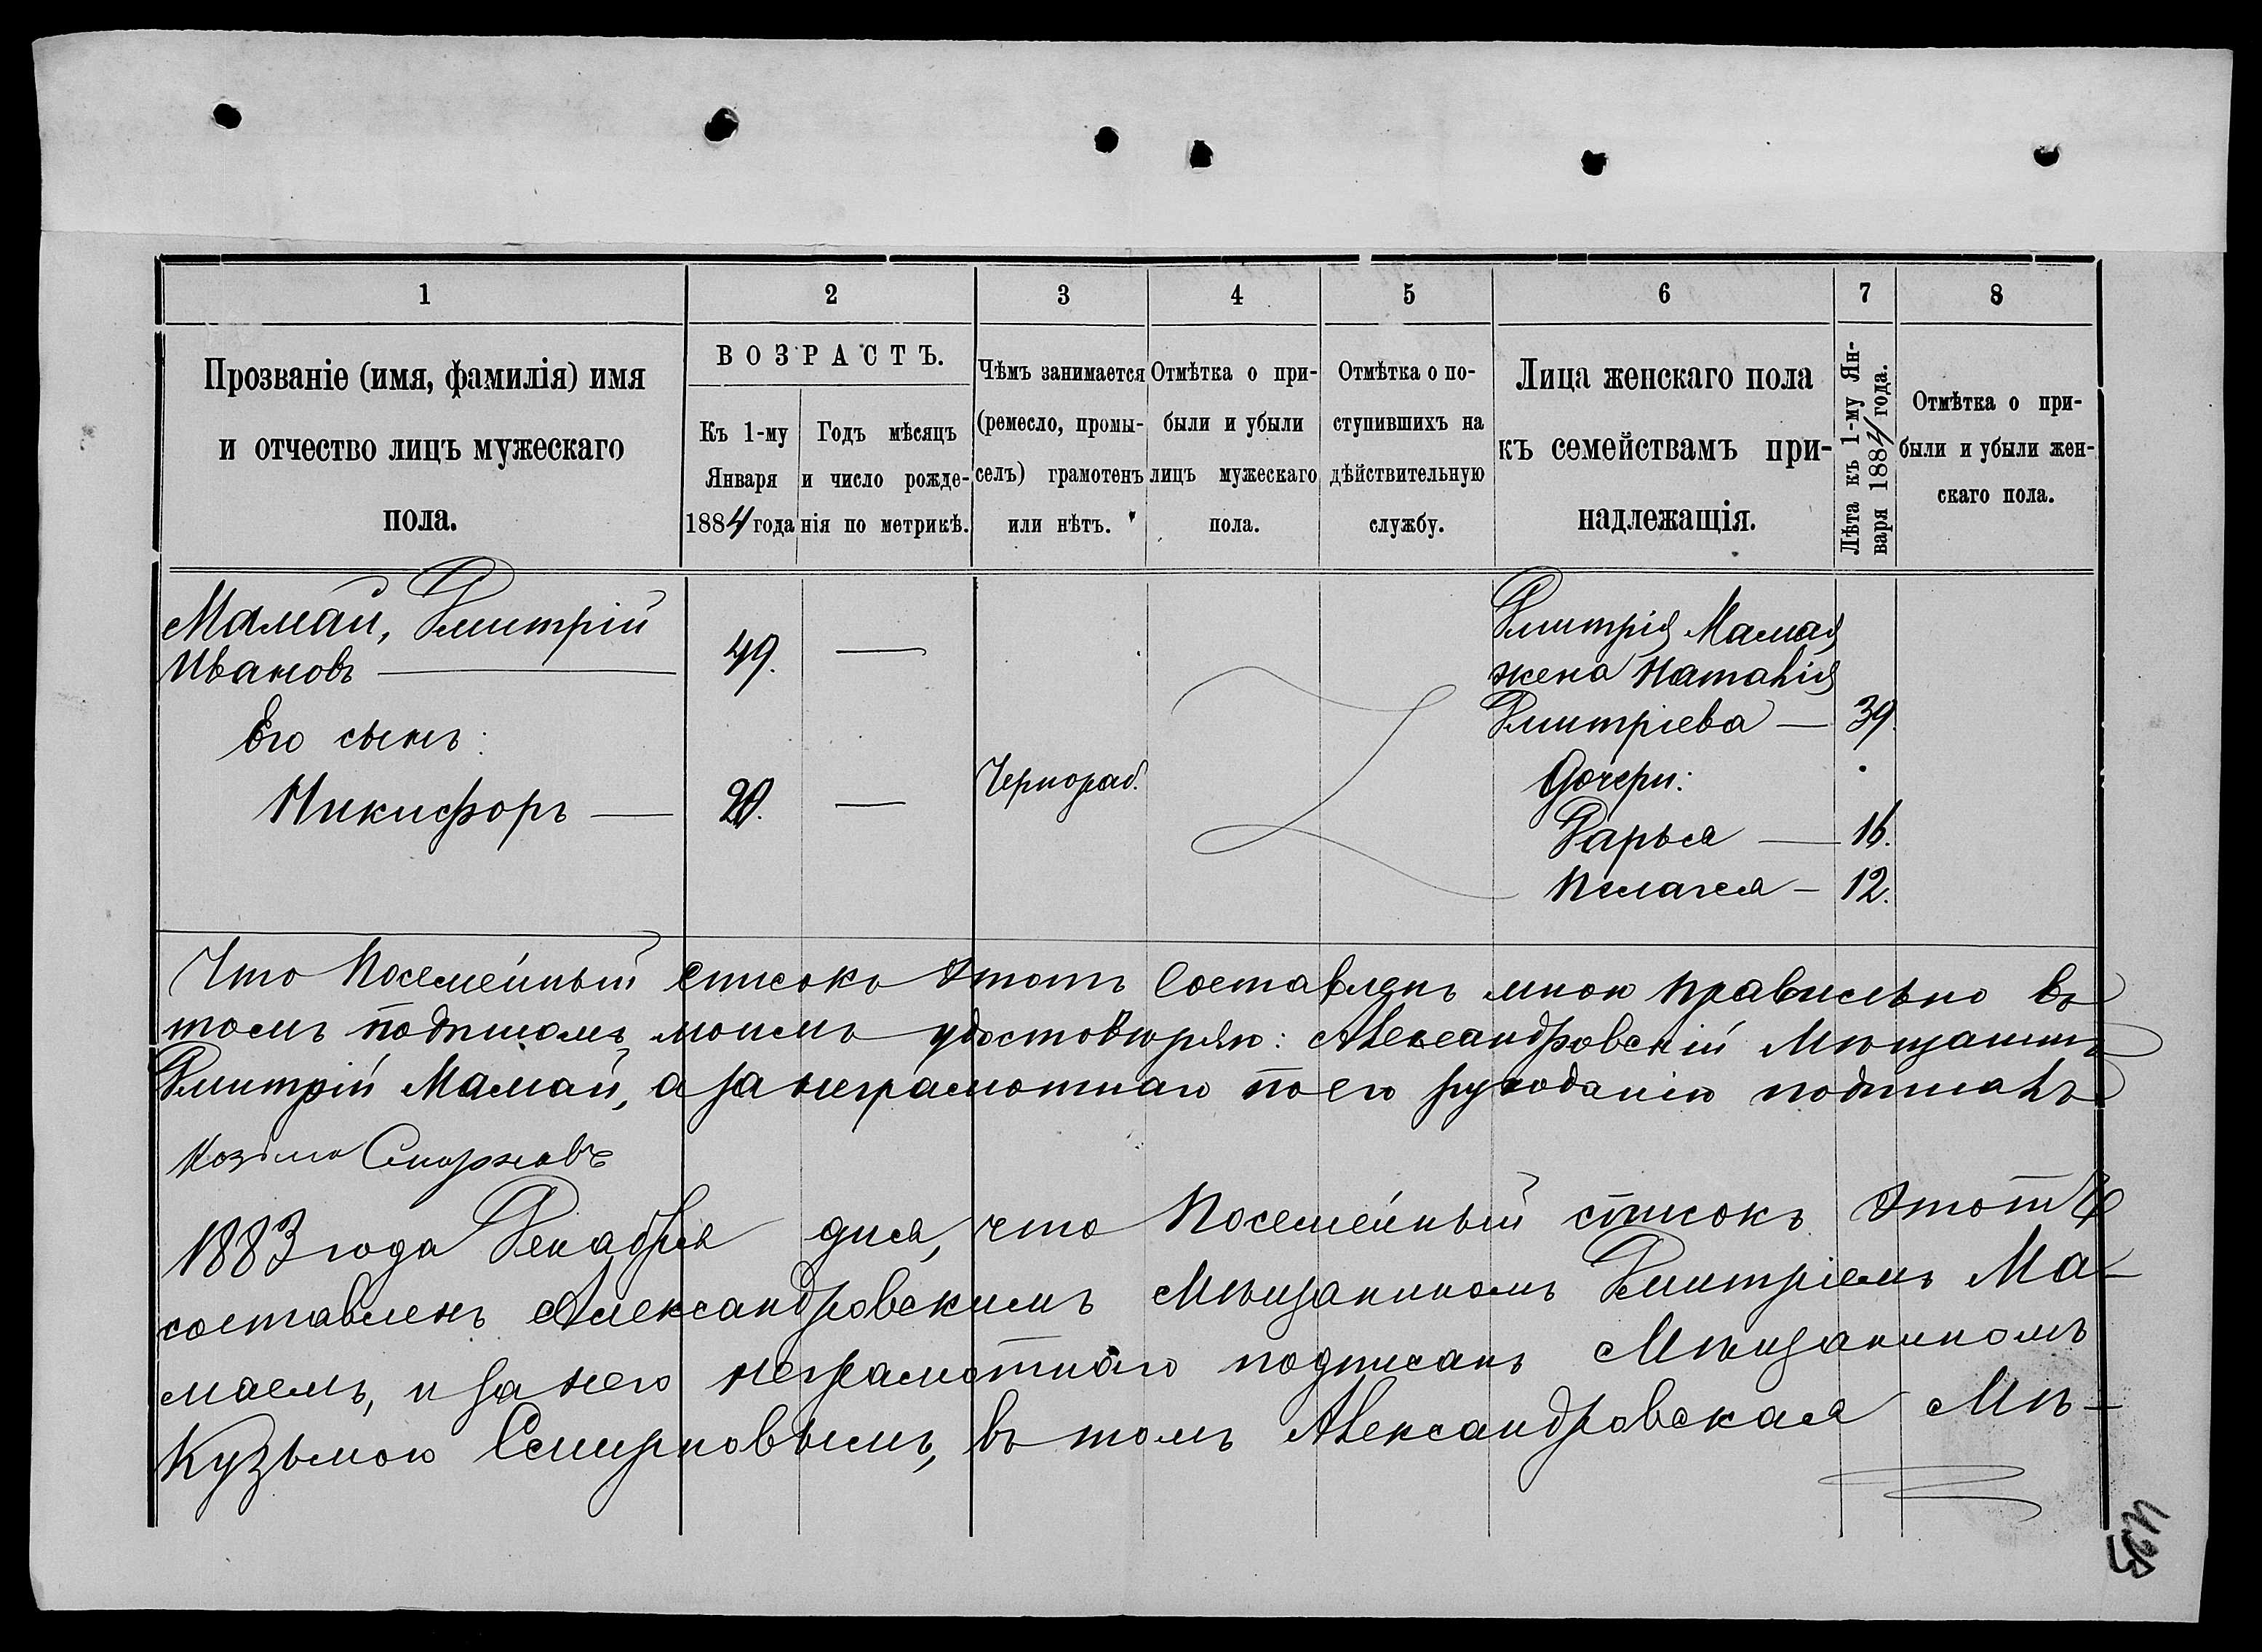 1
2
3
4
5
6
7
8
Прозваніе (имя, фамилія) имя
и отчество лицъ мужескаго
пола.
ВОЗРАСТЪ.
Къ 1-му
Января
1884 года
Годъ мѣсяцъ
и число рожде-
нія по метрикѣ.
Чѣмъ занимается
(ремесло, промы-
селъ) грамотенъ
или нѣтъ.
Отмѣтка о при-
были и убыли
лицъ мужескаго
пола.
Отмѣтка о по-
ступившихъ на
дѣйствительную
службу.
Лица женскаго пола
къ семействамъ при-
надлежащія.
Лѣта къ 1-му Ян-
варя 1884 года.
Отмѣтка о при-
были и убыли жен-
скаго пола.
Мамай, Дмитрій
Ивановъ — 49. —
Его сынъ:
Никифоръ — 20. — Чернораб.
Дмитрія Мамая
жена Наталія
Дмитріева — 39.
Дочери:
Дарья — 16.
Пелагея — 12.
Что Посемейный списокъ этотъ составленъ мною правильно въ
томъ подписомъ моимъ удостовѣряю: Александровскій Мѣщанинъ
Дмитрій Мамай, а за неграмотнаго по его рукоданію подписалъ
Козьма Смирновъ
1883 года Декабря дня, что Посемейный списокъ этотъ
составленъ Александровскимъ Мѣщаниномъ Дмитріемъ Ма-
маемъ, и за него неграмотнаго подписанъ Мѣщаниномъ
Кузьмою Смирновымъ, въ томъ Александровская Мѣ-